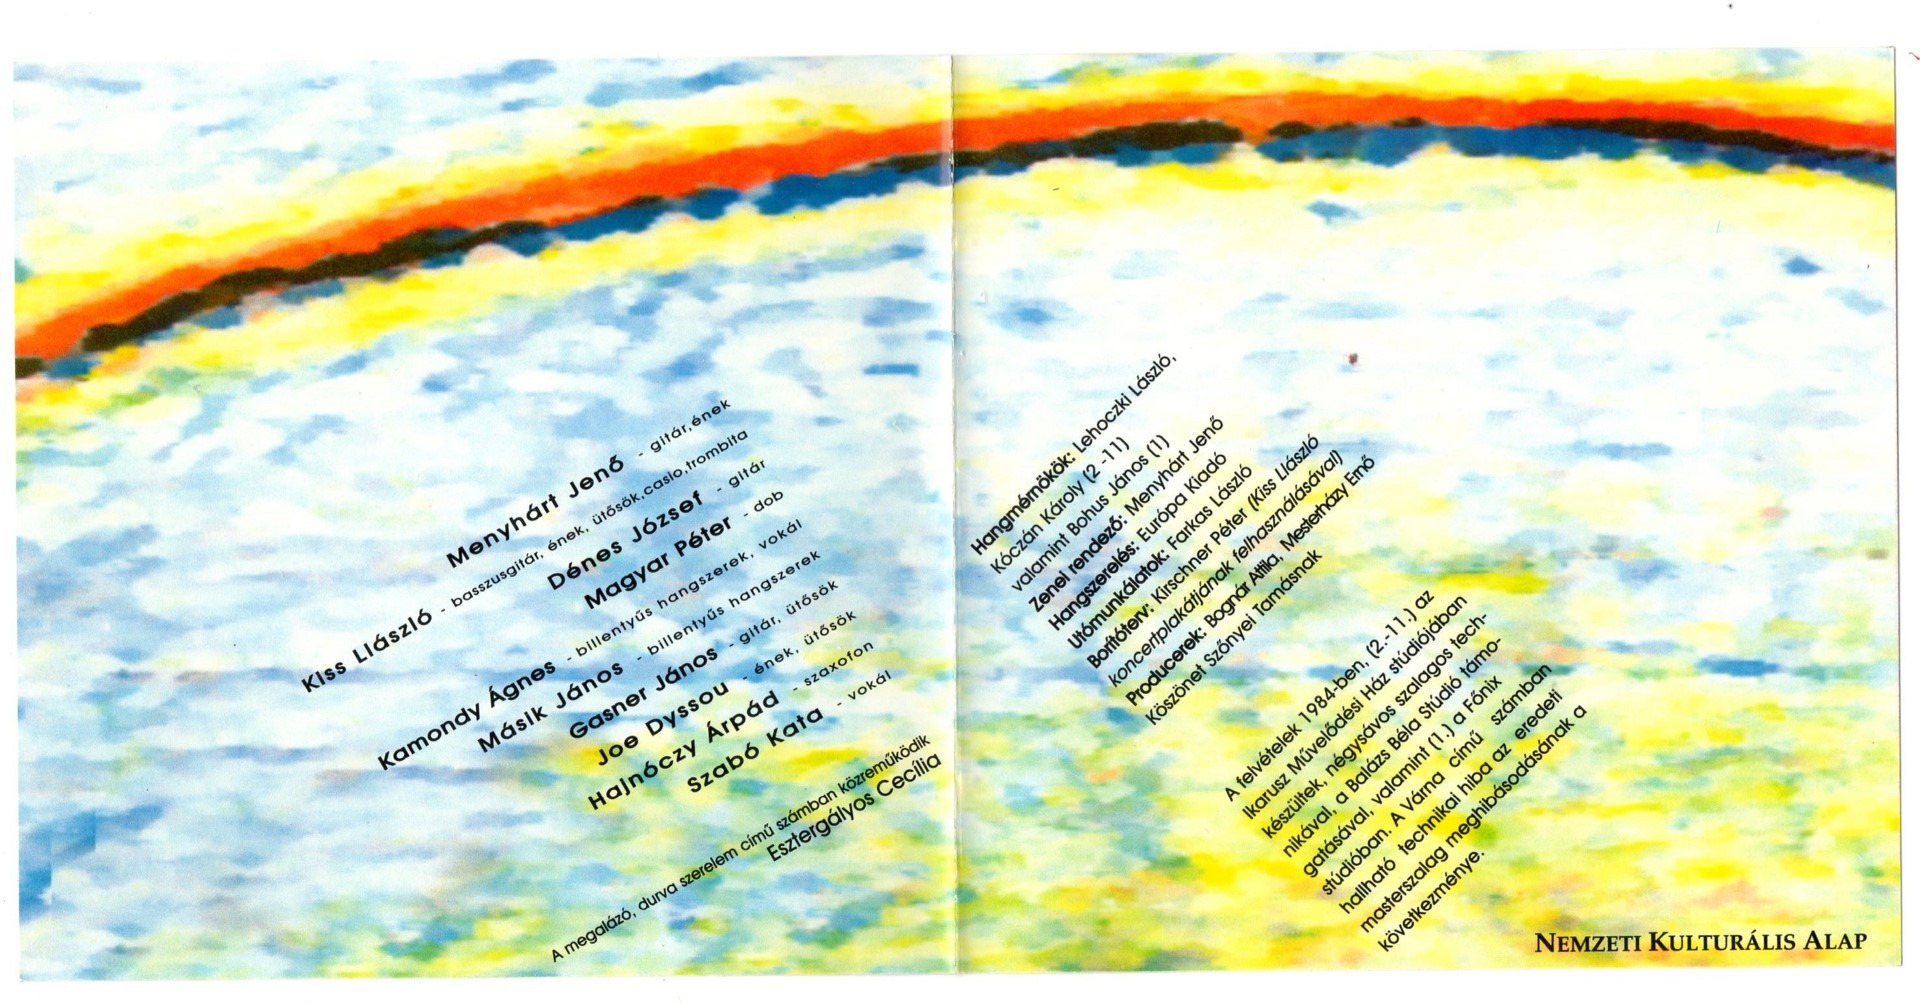 Menyhárt Jenő - gitár,ének
Kiss Llászló - basszusgitár, ének, ütősök,casio,trombita
Dénes József - gitár
Magyar Péter - dob
Kamondy Ágnes - billentyűs hangszerek, vokál
Másik János - billentyűs hangszerek
Gasner János - gitár, ütősök
Joe Dyssou - ének, ütősök
Hajnóczy Árpád - szaxofon
Szabó Kata - vokál
A megalázó, durva szerelem című számban közreműködik
Esztergályos Cecília
Hangmérnökök: Lehoczki László,
Kóczán Károly (2.-11)
valamint Bohus János (1)
Zenei rendező: Menyhárt Jenő
Hangszerelés: Európa Kiadó
Utómunkálatok: Farkas László
Borítóterv: Kirschner Péter (Kiss Llászló
koncertplakátjának felhasználásával)
Producerek: Bognár Attila, Mesterházy Ernő
Köszönet Szőnyei Tamásnak
A felvételek 1984-ben, (2.-11.) az
Ikarusz Művelődési Ház stúdiójában
készültek, négysávos szalagos tech-
nikával, a Balázs Béla Stúdió támo-
gatásával, valamint (1.) a Főnix
stúdióban. A Várna című számban
hallható technikai hiba az eredeti
masterszalag meghibásodásának a
következménye.
NEMZETI KULTURÁLIS ALAP